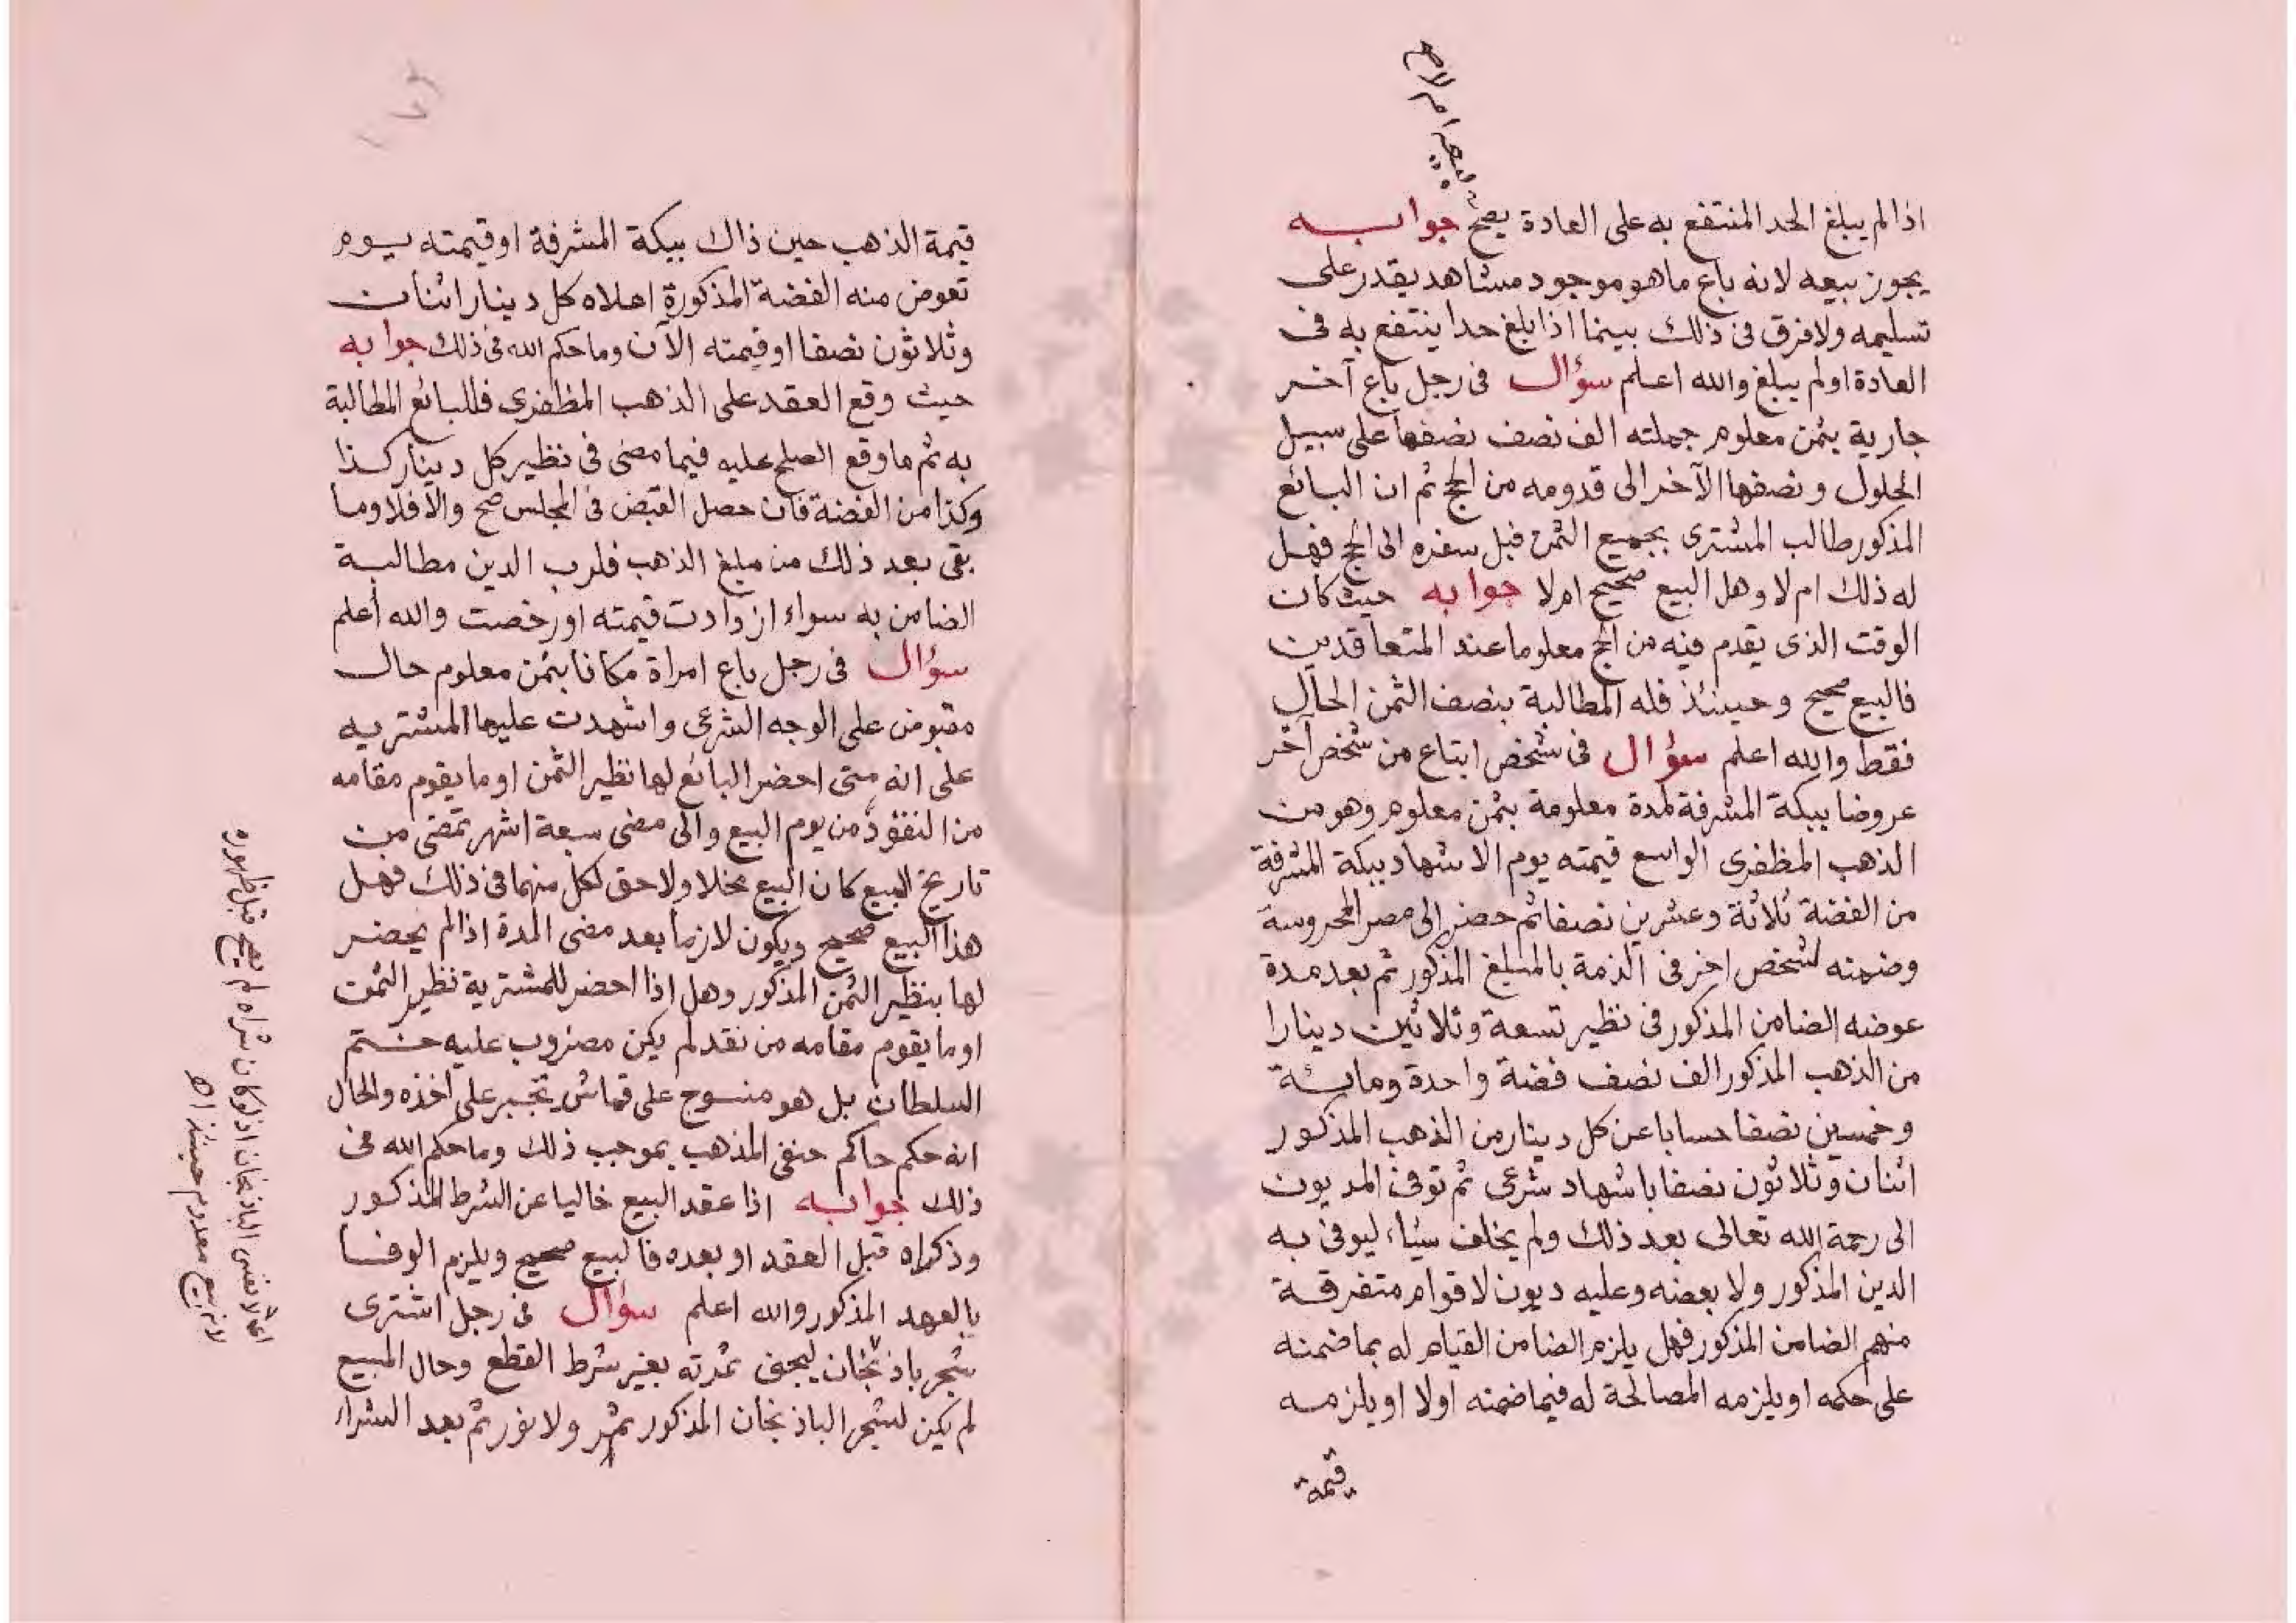 بيعه ام لا صح
اذا لم يبلغ الحد المنتفع به على العادة يصح جوابه
يجوز بيعه لانه باع ما هو موجود مشاهد يقدر على
تسليمه ولا فرق فى ذلك بينما اذا بلغ حدا ينتفع به فى
العادة او لم يبلغ والله اعلم سؤال فى رجل باع آخر
جارية بثمن معلوم جملته الف نصف نصفها على سبيل
الحلول ونصفها الآخر الى قدومه من الحج ثم ان البائع
المذكور طالب المشترى بجميع الثمن قبل سفره الى الحج فهل
له ذلك ام لا وهل البيع صحيح ام لا جوابه حيث كان
الوقت الذى يقدم فيه من الحج معلوما عند المتعاقدين
فالبيع صحيح وحينئذ فله المطالبة بنصف الثمن الحال
فقط والله اعلم سؤال فى شخص ابتاع من شخص آخر
عروضا ببكة المشرفة لمدة معلومة بثمن معلوم وهو من
الذهب المظفرى الواسع قيمته يوم الاشهاد ببكة المشرفة
من الفضة ثلاثة وعشرين نصفا ثم حضر الى مصر المحروسة
وضمنه لشخص اخر فى الذمة بالمبلغ المذكور ثم بعد مدة
عوضه الضامن المذكور فى نظير تسعة وثلاثين دينارا
من الذهب المذكور الف نصف فضة واحدة ومائة
وخمسين نصفا حسابا عن كل دينار من الذهب المذكور
اثنان وثلاثون نصفا باشهاد شرعى ثم توفى المديون
الى رحمة الله تعالى بعد ذلك ولم يخلف شياء ليوفى به
الدين المذكور ولا بعضه وعليه ديون لاقوام متفرقة
منهم الضامن المذكور فهل يلزم الضامن القيام له بما ضمنه
على حكمه او يلزمه المصالحة له فيما ضمنه اولا او يلزمه
قيمة
١٧٢
قيمة الذهب حين ذاك ببكة المشرفة او قيمته يوم
تعوض منه الفضة المذكورة اعلاه كل دينار اثنان
وثلاثون نصفا او قيمته الآن وما حكم الله فى ذلك جوابه
حيث وقع العقد على الذهب المظفرى فللبائع المطالبة
به ثم ما وقع الصلح عليه فيما مضى فى نظير كل دينار كذا
وكذا من الفضة فان حصل القبض فى المجلس صح والا فلا وما
بقى بعد ذلك من مبلغ الذهب فلرب الدين مطالبة
الضامن به سواء ازدادت قيمته او رخصت والله أعلم
سؤال فى رجل باع امراة مكانا بثمن معلوم حال
مقبوض على الوجه الشرعى واشهدت عليها المشتريه
على انه متى احضر البائع لها نظير الثمن او ما يقوم مقامه
من النقود من يوم البيع والى مضى سبعة اشهر تمضى من
تاريخ البيع كان البيع مخلا ولا حق لكل منهما فى ذلك فهل
هذا البيع صحيح ويكون لازما بعد مضى المدة اذا لم يحضر
لها بنظير الثمن المذكور وهل اذا احضر للمشترية نظير الثمن
او ما يقوم مقامه من نقد لم يكن مضروب عليه ختم
السلطان بل هو منسوج على قماش تجبر على اخذه والحال
انه حكم حاكم حنفى المذهب بموجب ذلك وما حكم الله فى
ذلك جوابه اذا عقد البيع خاليا عن الشرط المذكور
وذكراه قبل العقد او بعده فالبيع صحيح ويلزم الوفا
بالعهد المذكور والله اعلم سؤال فى رجل اشترى
شجر باذنجان ليجنى ثمرته بغير شرط القطع وحال المبيع
لم يكن لشجر الباذنجان المذكور ثمر ولا نور ثم بعد الشراء
نفس الباذنجان اذ لو كان شراه لم يصح قبل ظهوره
لانه بيع معدوم حينئذ اھ